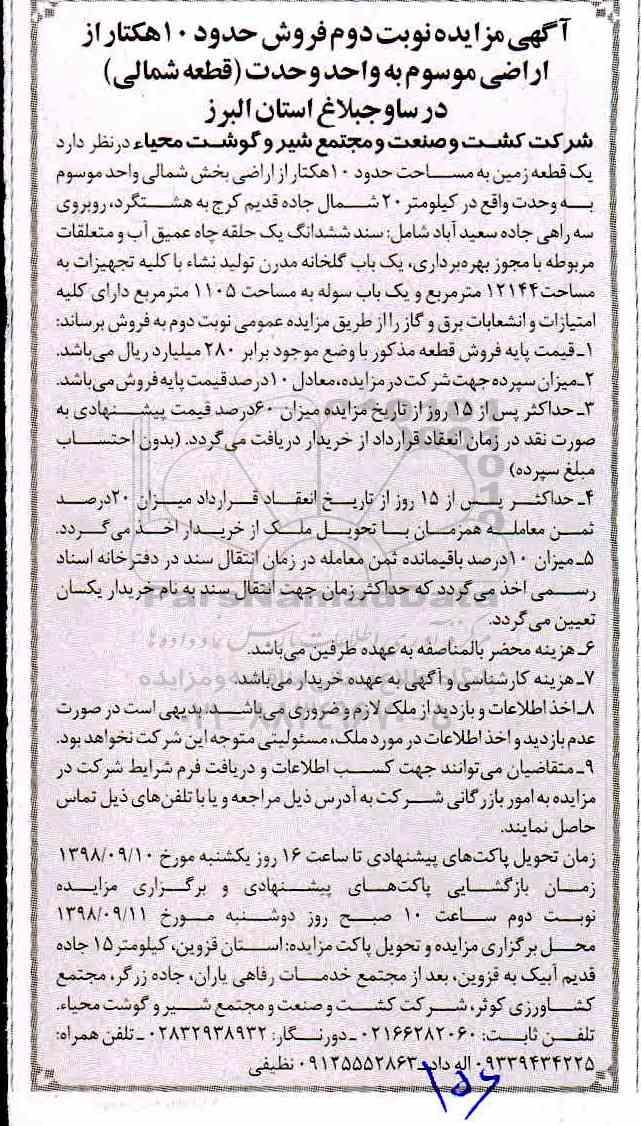 آگهی مزایده نوبت دوم فروش حدود ۱۰هکتار از
اراضی موسوم به واحد وحدت (قطعه شمالی)
در ساوجبلاغ استان البرز
شرکت کشت و صنعت و مجتمع شیر و گوشت محیاء در نظر دارد
یک قطعه زمین به مساحت حدود ۱۰هکتار از اراضی بخش شمالی واحد موسوم
به وحدت واقع در کیلومتر ۲۰ شمال جاده قدیم کرج به هشتگرد، روبروی
سه راهی جاده سعید آباد شامل: سند ششدانگ یک حلقه چاه عمیق آب و متعلقات
مربوطه با مجوز بهره‌برداری، یک باب گلخانه مدرن تولید نشاء با کلیه تجهیزات به
مساحت۱۲۱۴۴ مترمربع و یک باب سوله به مساحت ۱۱۰۵ مترمربع دارای کلیه
امتیازات و انشعابات برق و گاز را از طریق مزایده عمومی نوبت دوم به فروش برساند:
۱ـ قیمت پایه فروش قطعه مذکور با وضع موجود برابر ۲۸۰ میلیارد ریال می‌باشد.
۲ـ میزان سپرده جهت شرکت در مزایده، معادل ۱۰درصد قیمت پایه فروش می‌باشد.
۳ـ حداکثر پس از ۱۵ روز از تاریخ مزایده میزان ۶۰درصد قیمت پیشنهادی به
صورت نقد در زمان انعقاد قرارداد از خریدار دریافت می‌گردد. (بدون احتساب
مبلغ سپرده)
۴ـ حداکثر پس از ۱۵ روز از تاریخ انعقاد قرارداد میزان ۲۰درصد
ثمن معامله همزمان با تحویل ملک از خریدار اخذ می‌گردد.
۵ـ میزان ۱۰درصد باقیمانده ثمن معامله در زمان انتقال سند در دفترخانه اسناد
رسمی اخذ می‌گردد که حداکثر زمان جهت انتقال سند به نام خریدار یکسان
تعیین می‌گردد.
۶ـ هزینه محضر بالمناصفه به عهده طرفین می‌باشد.
۷ـ هزینه کارشناسی و آگهی به عهده خریدار می‌باشد
۸ـ اخذ اطلاعات و بازدید از ملک لازم و ضروری می‌باشد. بدیهی است در صورت
عدم بازدید و اخذ اطلاعات در مورد ملک، مسئولیتی متوجه این شرکت نخواهد بود.
۹ـ متقاضیان می‌توانند جهت کسب اطلاعات و دریافت فرم شرایط شرکت در
مزایده به امور بازرگانی شرکت به آدرس ذیل مراجعه و یا با تلفن‌های ذیل تماس
حاصل نمایند.
زمان تحویل پاکت‌های پیشنهادی تا ساعت ۱۶ روز یکشنبه مورخ ۱۳۹۸/۰۹/۱۰
زمان بازگشایی پاکت‌های پیشنهادی و برگزاری مزایده
نوبت دوم ساعت ۱۰ صبح روز دوشنبه مورخ ۱۳۹۸/۰۹/۱۱
محل برگزاری مزایده و تحویل پاکت مزایده: استان قزوین، کیلومتر ۱۵ جاده
قدیم آبیک به قزوین، بعد از مجتمع خدمات رفاهی یاران، جاده زرگر، مجتمع
کشاورزی کوثر، شرکت کشت و صنعت و مجتمع شیر و گوشت محیاء.
تلفن ثابت: ۰۲۱۶۶۲۸۲۰۶۰ ـ دورنگار: ۰۲۸۳۲۹۳۸۹۳۲ ـ تلفن همراه:
۰۹۳۳۹۴۳۴۲۲۵ اله داد ـ ۰۹۱۲۵۵۵۲۸۶۳ نظیفی
ParsNamadData